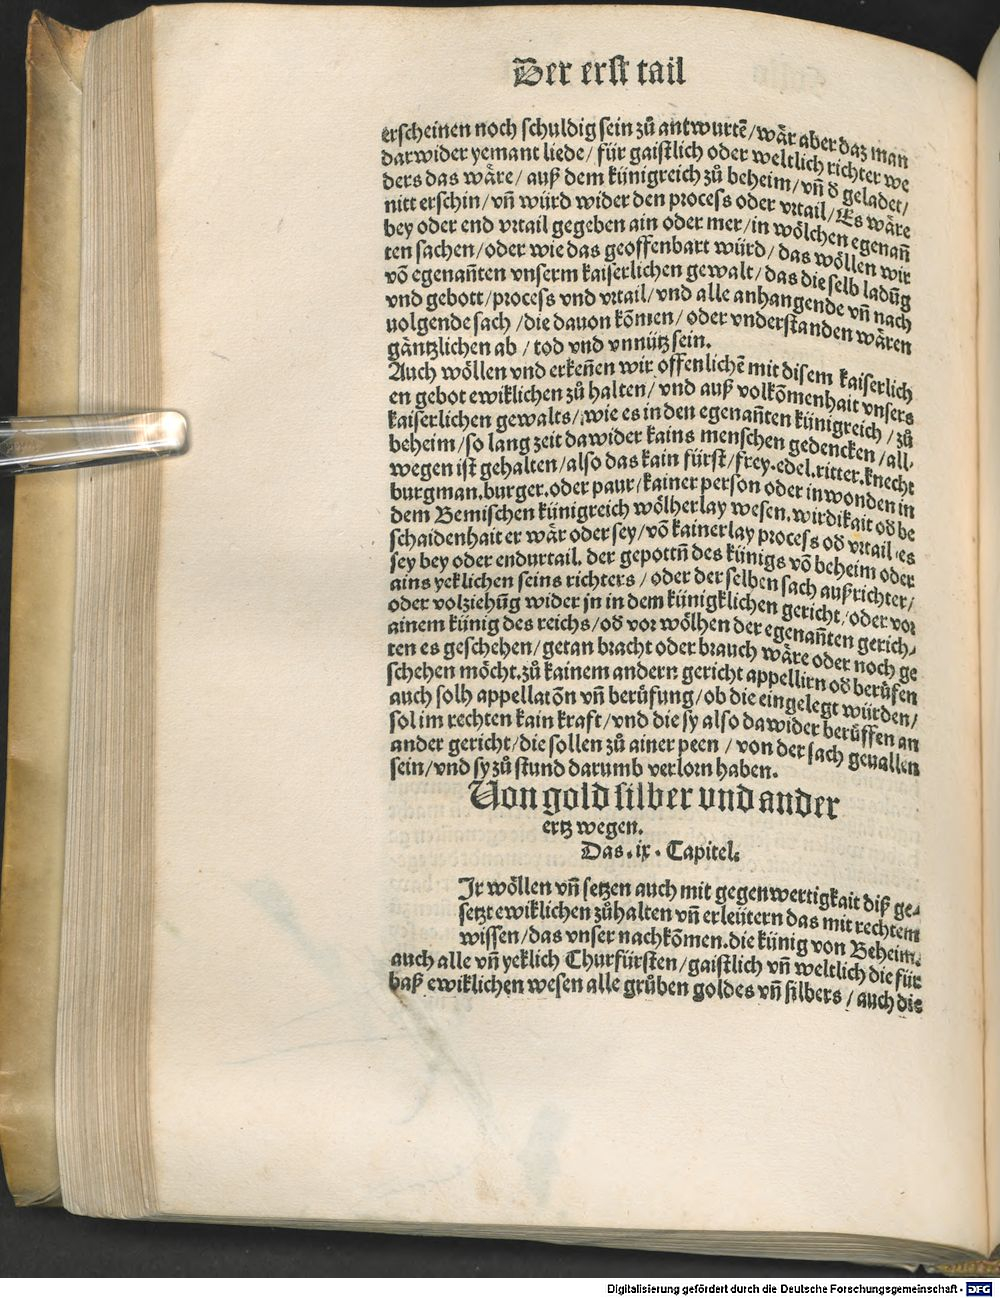 Der erst tail
erscheinen noch schuldig sein zů antwurtē/wår aber daz man
darwider yemant liede/für gaistlich oder weltlich richter we
ders das wåre/auß dem künigreich zů beheim/vn̄ ď geladet/
nitt erschin/vn̄ würd wider den process oder vrtail/Es wåre
bey oder end vrtail gegeben ain oder mer/in wölchen egenan̄
ten sachen/oder wie das geoffenbart würd/das wöllen wir
vō egenan̄ten vnserm kaiserlichen gewalt/das die selb ladūg
vnd gebott/process vnd vrtail/vnd alle anhangende vn̄ nach
uolgende sach/die dauon kōmen/oder vnderstanden wåren
gåntzlichen ab/tod vnd vnnütz sein.
Auch wöllen vnd erken̄en wir offenlichē mit disem kaiserlich
en gebot ewiklichen zů halten/vnd auß volkōmenhait vnsers
kaiserlichen gewalts/wie es in den egenan̄ten künigreich/zů
beheim/so lang zeit dawider kains menschen gedencken/all-
wegen ist gehalten/also das kain fürst/frey.edel.ritter.knecht
burgman.burger.oder paur/kainer person oder inwonden in
dem Bemischen künigreich wölherlay wesen.wirdikait oď be
schaidenhait er wår oder sey/vō kainerlay process oď vrtail es
sey bey oder endurtail. der gepottn̄ des künigs vō beheim oder
ains yeklichen seins richters/oder der selben sach außrichter/
oder volziehūg wider jn in dem künigklichen gericht/oder vor
ainem künig des reichs/oď vor wölhen der egenan̄ten gerich-
ten es geschehen/getan bracht oder brauch wåre oder noch ge
schehen möcht.zů kainem andern gericht appellirn oď berůfen
auch solh appellatōn vn̄ berůfung/ob die eingelegt würden/
sol im rechten kain kraft/vnd die sy also dawider berůffen an
ander gericht/die sollen zů ainer peen/von der sach geuallen
sein/vnd sy zů stund darumb verlorn haben.
Von gold silber vnd ander
ertz wegen.
Das.ix.Capitel.
Ir wöllen vn̄ setzen auch mit gegenwertigkait diß ge-
setzt ewiklichen zůhalten vn̄ erleütern das mit rechtem
wissen/das vnser nachkōmen.die künig von Beheim.
auch alle vn̄ yeklich Churfürsten/gaistlich vn̄ weltlich die für
baß ewiklichen wesen alle grůben goldes vn̄ silbers/auch die
Digitalisierung gefördert durch die Deutsche Forschungsgemeinschaft - DFG